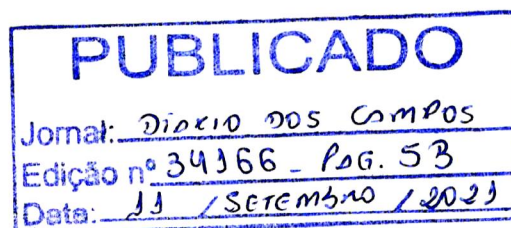 PUBLICADO
Jornal: DIÁRIO DOS CAMPOS
Edição nº 34166 - PÁG. 5B
Data: 11 / SETEMBRO / 2021